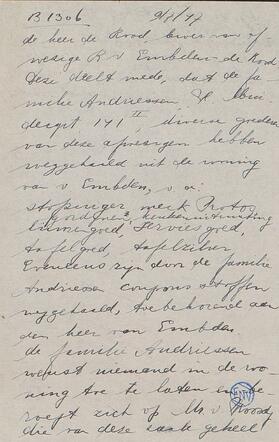 B 1306 9/7/47
de heer de Rood, bew. v.
wezige R v Embden - de Rood
Deze deelt mede, dat de fa-
milie Andriessen, Z.
171 II, diverse goederen
van deze afwezigen hebben
weggehaald uit de woning
van v Embden, v. a:
stofzuiger merk Protos
gordijnen, keukenuitrusting
linnengoed, serviesgoed,
tafelgoed, tafelzilver
Eveneens zijn door de familie
Andriessen coupons stoffen
weggehaald, toebehorend aan
den heer van Embden.
de familie Andriessen
wenst niemand in de wo-
ning toe te laten en be-
roept zich op Mr. v
die van deze zaak geheel